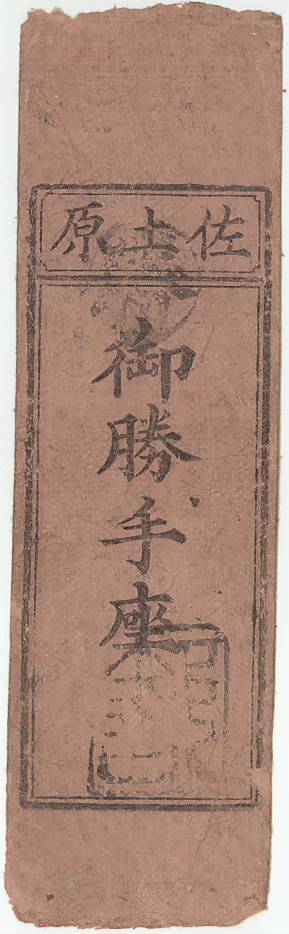 佐土原
御勝手座